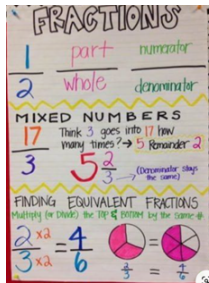 FRACTIONS
1 part numerator
2 whole denominator
MIXED NUMBERS
17 Think 3 goes into 17 how
many times? → 5 Remainder 2
3 5 2/3 → (Denominator stays
the same)
FINDING EQUIVALENT FRACTIONS
Multiply (or Divide) the TOP & BOTTOM by the same #.
2 x2 = 4
3 x2 6
=
2/3 = 4/6